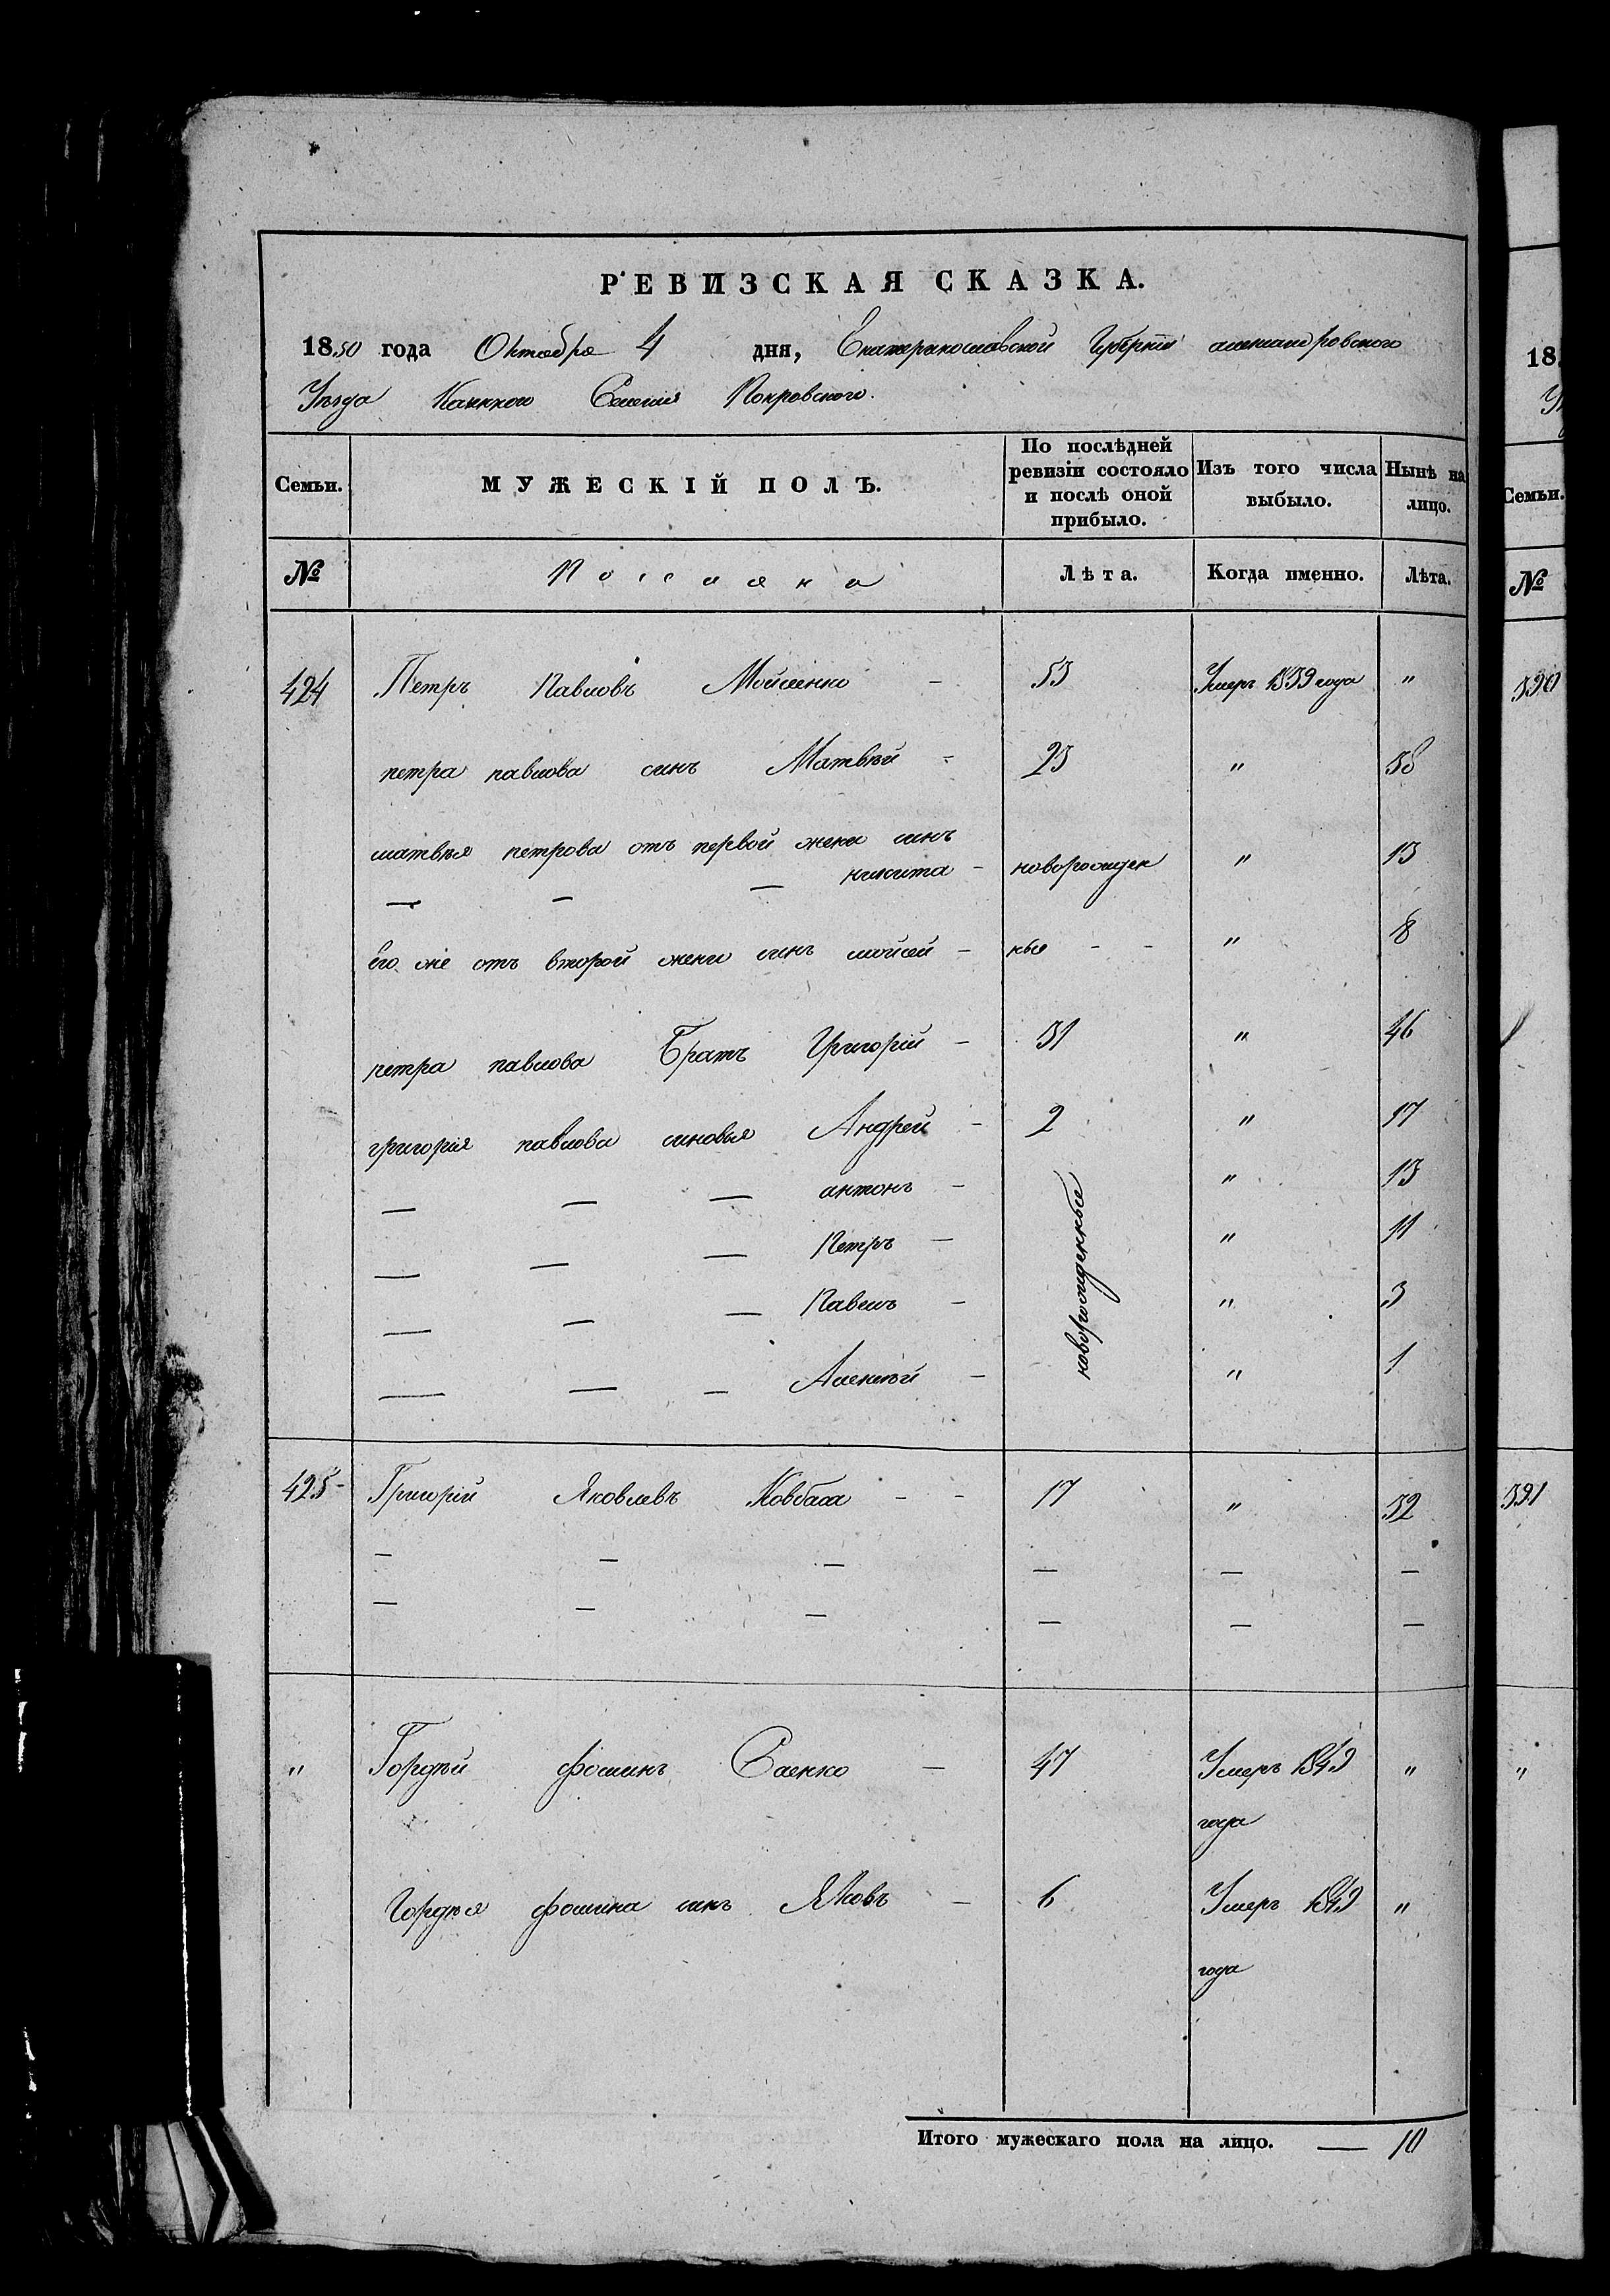 РЕВИЗСКАЯ СКАЗКА.
1850 года Октября 4 дня, Екатеринославской Губерніи александровского
Уѣзда Казенного Селенія Покровского.
Семьи. МУЖЕСКІЙ ПОЛЪ. По послѣдней ревизіи состояло и послѣ оной прибыло. Изъ того числа выбыло. Нынѣ на лицо.
№ Поселяне Лѣта. Когда именно. Лѣта.
424 Петръ Павловъ Мойсенко - 53 Умеръ 1839 года "
петра павлова синъ Матвѣй - 23 " 38
матвѣя петрова отъ первой жени синъ
— — — никита - новорожден " 13
его же отъ второй жени синъ мойсей - ные - - " 8
петра павлова Братъ Григорій - 31 " 46
григорія павлова синовья Андрей - 2 " 17
— — — антонъ - новорожденные " 13
— — — Петръ - " 11
— — — Павелъ - " 3
— — — Алексѣй - " 1
425 - Григорій Яковлевъ Ковбаса - - 17 " 32
— — — — — —
— — — — — —
" Гордѣй фоминъ Саенко - 47 Умеръ 1849
года "
Гордѣя фомина синъ Яковъ - 6 Умеръ 1849
года "
Итого мужескаго пола на лицо. — 10
18
У
Семьи.
№
390
391
"